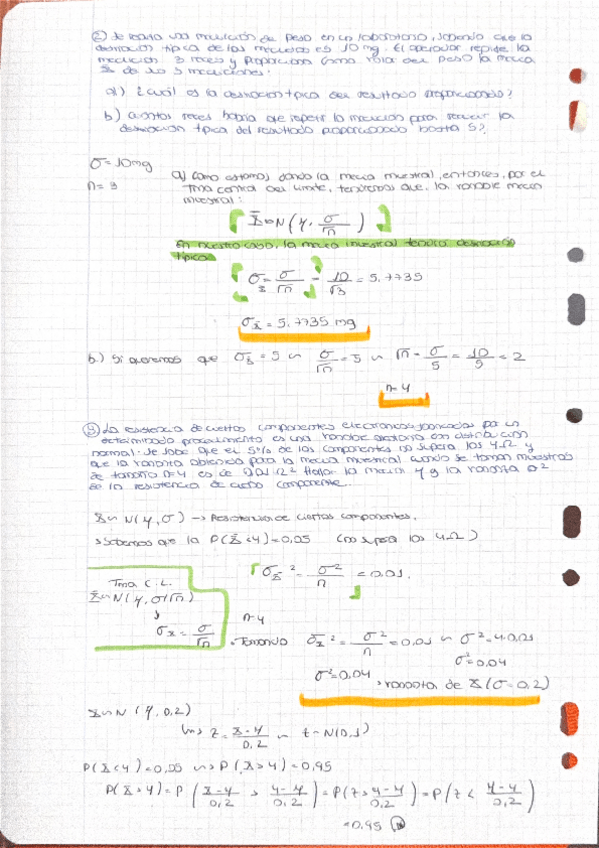 ② Se realiza una medición de peso en un laboratorio, sabiendo que la
desviación típica de las medidas es 10 mg. El operador repite la
medición 3 veces y proporciona como valor del peso la media
x̄ de las 3 mediciones:
a) ¿Cuál es la desviación típica del resultado proporcionado?
b) Cuántas veces habría que repetir la medición para reducir la
desviación típica del resultado proporcionado hasta 5?
σ = 10mg
n = 3
a) Como estamos dando la media muestral, entonces, por el
Tma central del límite, tendremos que, la variable media
muestral:
X̄ ~ N(μ, σ/√n)
En nuestro caso, la media muestral tendrá desviación
típica
σx̄ = σ/√n = 10/√3 = 5.7735
σx̄ = 5.7735 mg
b.) Si queremos que σx̄ = 5 ~ σ/√n = 5 ~ √n = σ/5 = 10/5 = 2
n=4
③ La resistencia de ciertos componentes electrónicos fabricados por un
determinado procedimiento es una variable aleatoria con distribución
normal. Se sabe que el 5% de los componentes no supera los 4Ω y
que la varianza obtenida para la media muestral cuando se toman muestras
de tamaño n=4 es de 0,01 Ω² Hallar la media μ y la varianza σ²
de la resistencia de dicho componente.
X ~ N(μ, σ) → Resistencia de ciertos componentes.
Sabemos que la P(X<4) = 0,05 (no supera los 4Ω)
Tma C.L.
X̄ ~ N(μ, σ/√n)
σx̄ = σ/√n
σx̄² = σ²/n = 0.01.
n=4
Tomando σx̄² = σ²/n = 0,01 ~ σ² = 4·0,01
σ² = 0.04
σ² = 0.04 varianza de X (σ = 0.2)
X ~ N(μ, 0.2)
z = X-μ/0.2 ~ z ~ N(0,1)
P(X<4) = 0,05 ~> P(X>4) = 0,95
P(X>4) = P(X-μ/0,2 > 4-μ/0,2) = P(z > 4-μ/0,2) = P(z < μ-4/0,2)
= 0.95